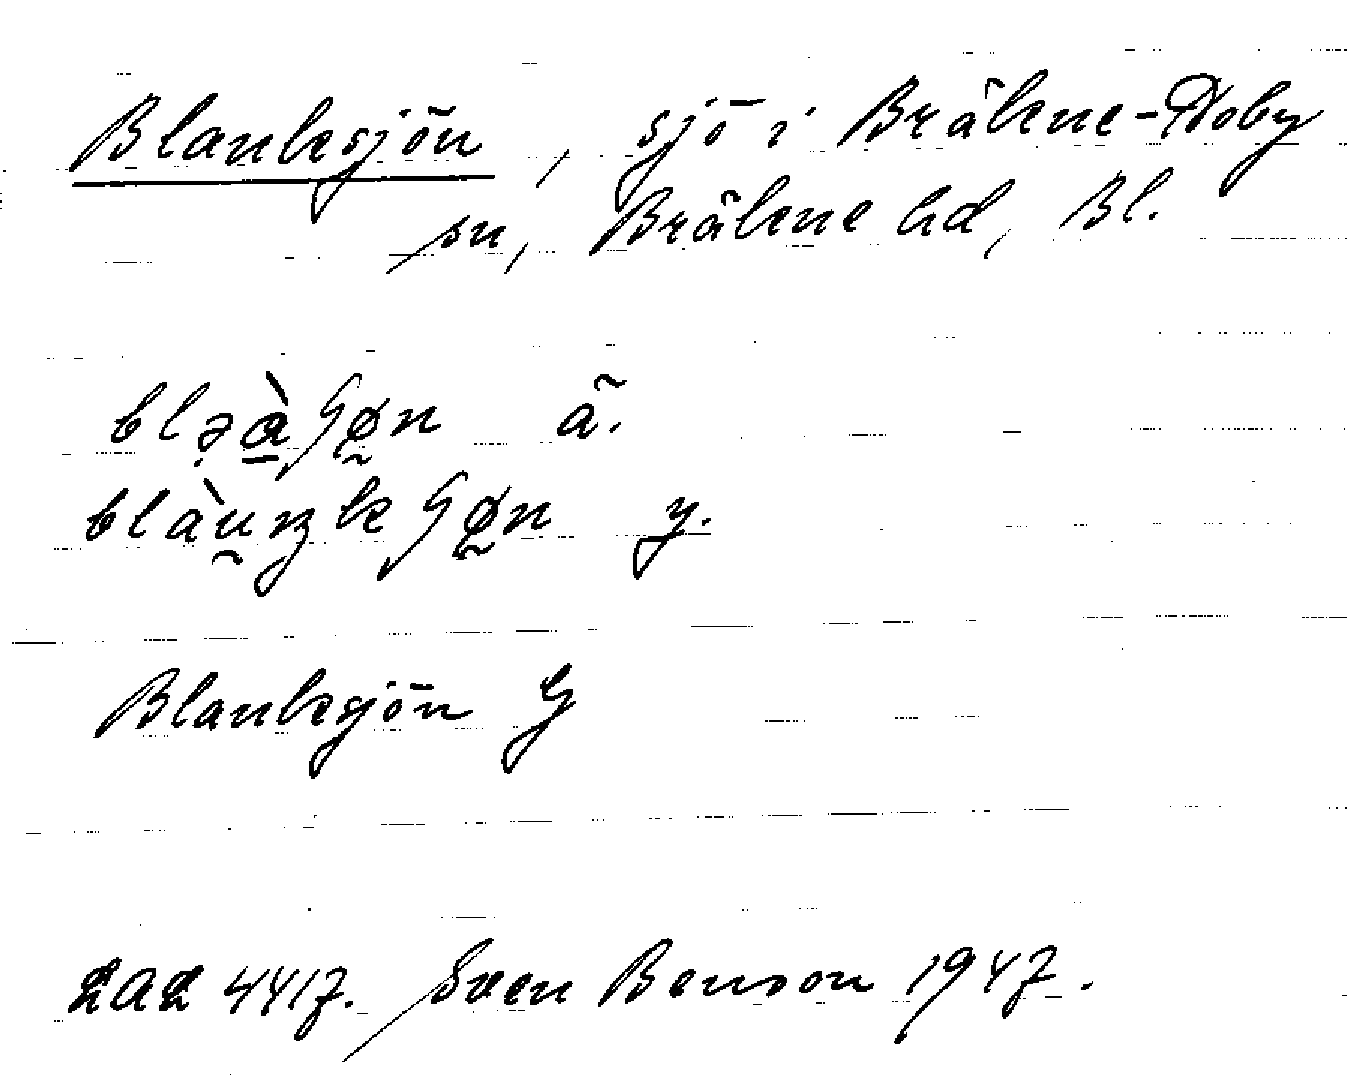 Blanksjön, sjö i Bräkne-Hoby
sn, Bräkne hd, Bl.
ä.
y.
Blanksjön G
LAL 4417. Sven Benson 1947.